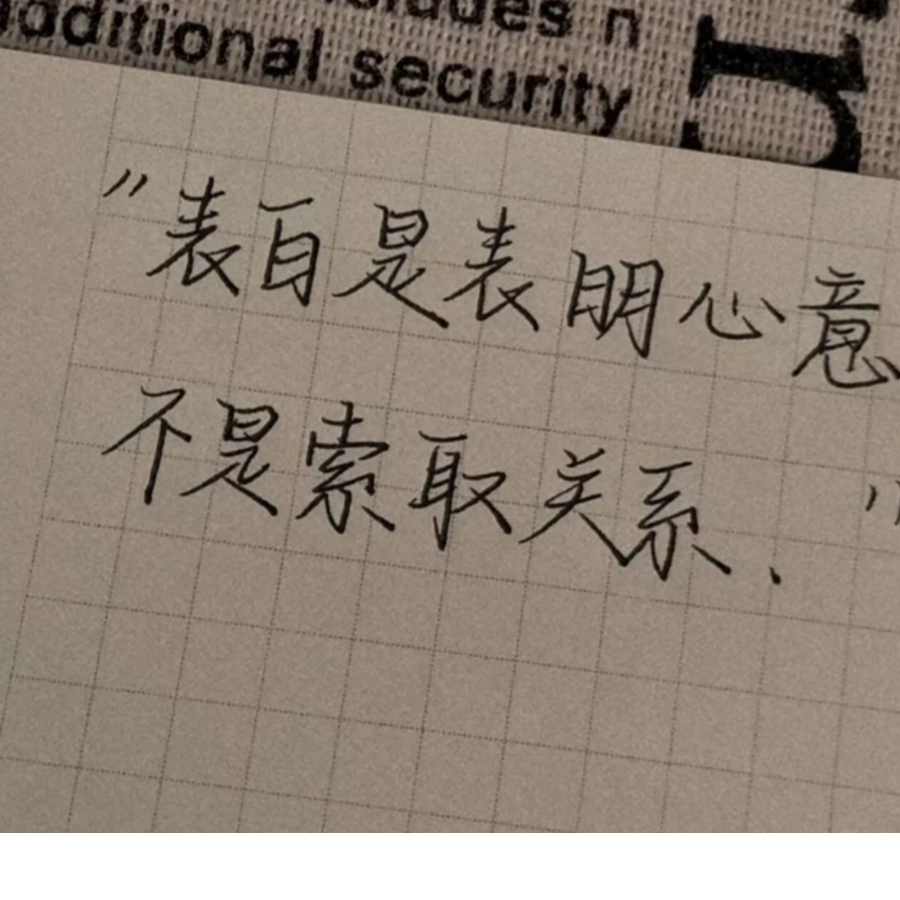 additional security
"表白是表明心意
不是索取关系."